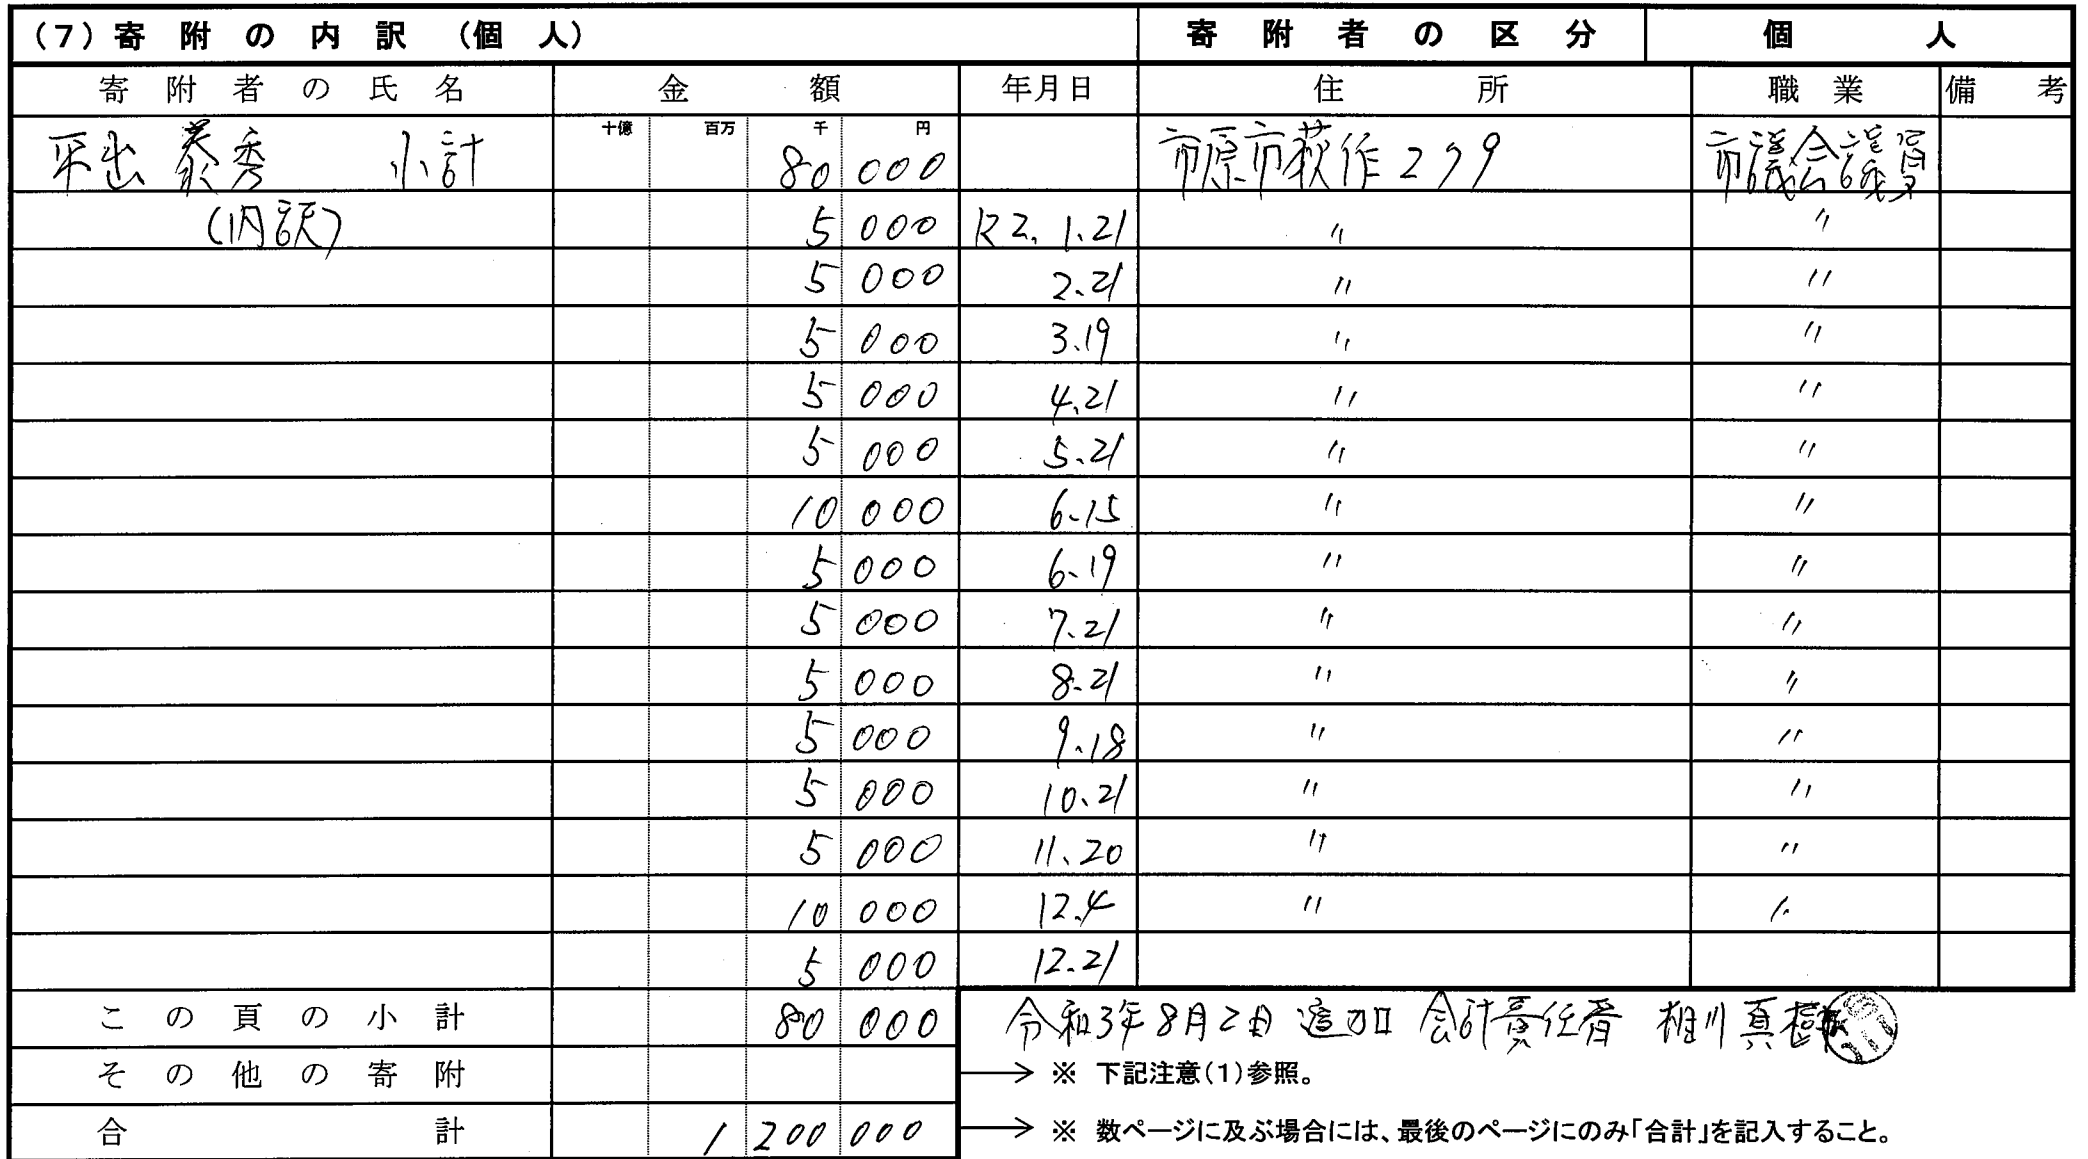 (7)寄附の内訳(個人) 寄附者の区分 個人
寄附者の氏名 金額 年月日 住所 職業 備考
十億 百万 千 円
平出泰秀 小計 80 000 市原市萩作279 市議会議員
(内訳) 5 000 R2.1.21 〃 〃
5 000 2.21 〃 〃
5 000 3.19 〃 〃
5 000 4.21 〃 〃
5 000 5.21 〃 〃
10 000 6.15 〃 〃
5 000 6.19 〃 〃
5 000 7.21 〃 〃
5 000 8.21 〃 〃
5 000 9.18 〃 〃
5 000 10.21 〃 〃
5 000 11.20 〃 〃
10 000 12.4 〃 〃
5 000 12.21
この頁の小計 80 000 令和3年8月2日 追加 会計責任者 相川真樹
その他の寄附 → ※ 下記注意(1)参照。
合計 1 200 000 → ※ 数ページに及ぶ場合には、最後のページにのみ「合計」を記入すること。